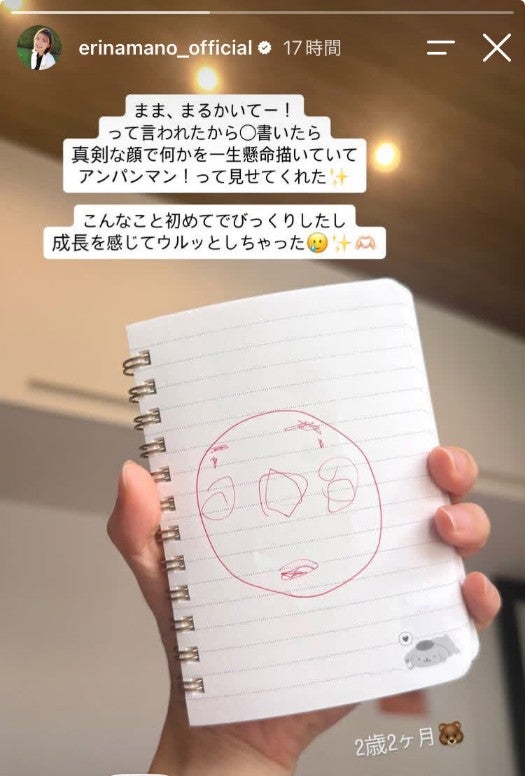 erinamano_official 17時間
まま、まるかいてー！
って言われたから◯書いたら
真剣な顔で何かを一生懸命描いていて
アンパンマン！って見せてくれた✨
こんなこと初めてでびっくりしたし
成長を感じてウルッとしちゃった🥲✨🫶🏻
2歳2ヶ月🐻